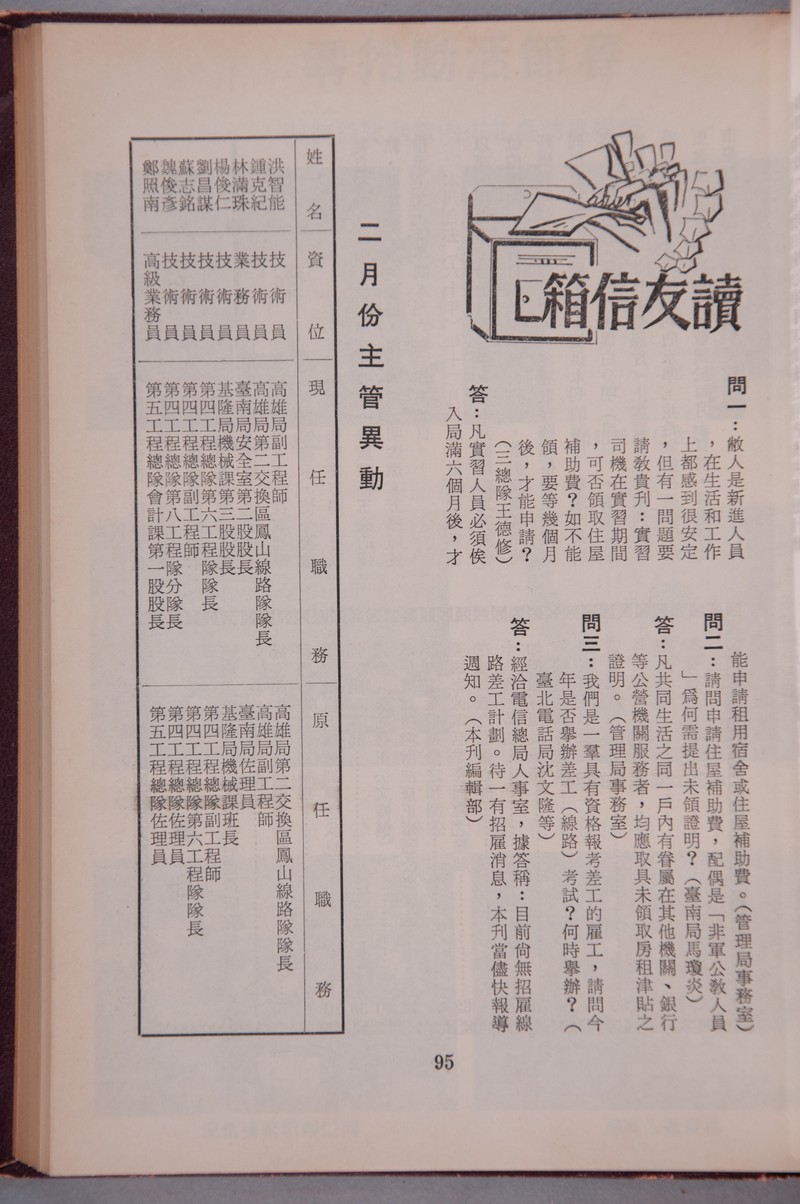 讀友信箱
問一：敝人是新進人員
，在生活和工作
上都感到很安定
，但有一問題要
請教貴刊：實習
司機在實習期間
，可否領取住屋
補助費？如不能
領，要等幾個月
後，才能申請？
（三總隊王德修）
答：凡實習人員必須俟
入局滿六個月後，才
能申請租用宿舍或住屋補助費。（管理局事務室）
問二：請問申請住屋補助費，配偶是「非軍公教人員
」爲何需提出未領證明？（臺南局馬瓊炎）
答：凡共同生活之同一戶內有眷屬在其他機關、銀行
等公營機關服務者，均應取具未領取房租津貼之
證明。（管理局事務室）
問三：我們是一羣具有資格報考差工的雇工，請問今
年是否舉辦差工（線路）考試？何時舉辦？（
臺北電話局沈文隆等）
答：經洽電信總局人事室，據答稱：目前尙無招雇線
路差工計劃。待一有招雇消息，本刊當儘快報導
週知。（本刊編輯部）
二月份主管異動
姓名 資位 現任職務 原任職務
洪智能 技術員 高雄局副工程師 高雄局第二交換區鳳山線路隊隊長
鍾克紀 技術員 高雄局第二交換區鳳山線路隊隊長 高雄局副工程師
林滿珠 業務員 臺南局安全室第二股股長 臺南局佐理員
楊俊仁 技術員 基隆局機械課第三股股長 基隆局機械課班長
劉昌謀 技術員 第四工程總隊第六工程隊隊長 第四工程總隊副工程師
蘇志銘 技術員 第四工程總隊副工程師 第四工程總隊第六工程隊隊長
魏俊彥 技術員 第四工程總隊第八工程隊分隊長 第四工程總隊佐理員
鄭照南 高級業務員 第五工程總隊會計課第一股股長 第五工程總隊佐理員
95